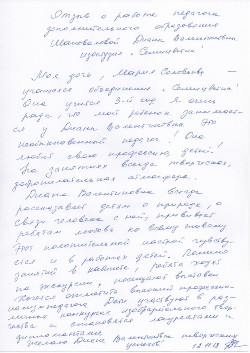 Отзыв о работе педагога
дополнительного образования
Диана Валентиновна
изостудия „Семицветик"
Моя дочь, Мария Соловьёва –
учащаяся объединения „Семицветик"
Она учится 3-й год. Я очень
рада, что мой ребенок занимает-
ся у Дианы Валентиновны. Это
необыкновенный педагог! Она
любит свою профессию, детей!
На занятиях всегда творческая,
доброжелательная атмосфера.
Диана Валентиновна всегда
рассказывает детям о природе, о
связи человека с ней, прививает
ребятам любовь ко всему живому.
Этот положительный настрой чувству-
ется и в работах детей. Помимо
занятий в кабинете, ребята ходят
на экскурсии, посещают выставки
Хочется отметить высокий профессио-
нализм педагога. Дети участвуют в раз-
личных конкурсах изобразительного твор-
чества и становятся лауреатами и
дипломантами.
Желаю Диане Валентиновне творческих
успехов!